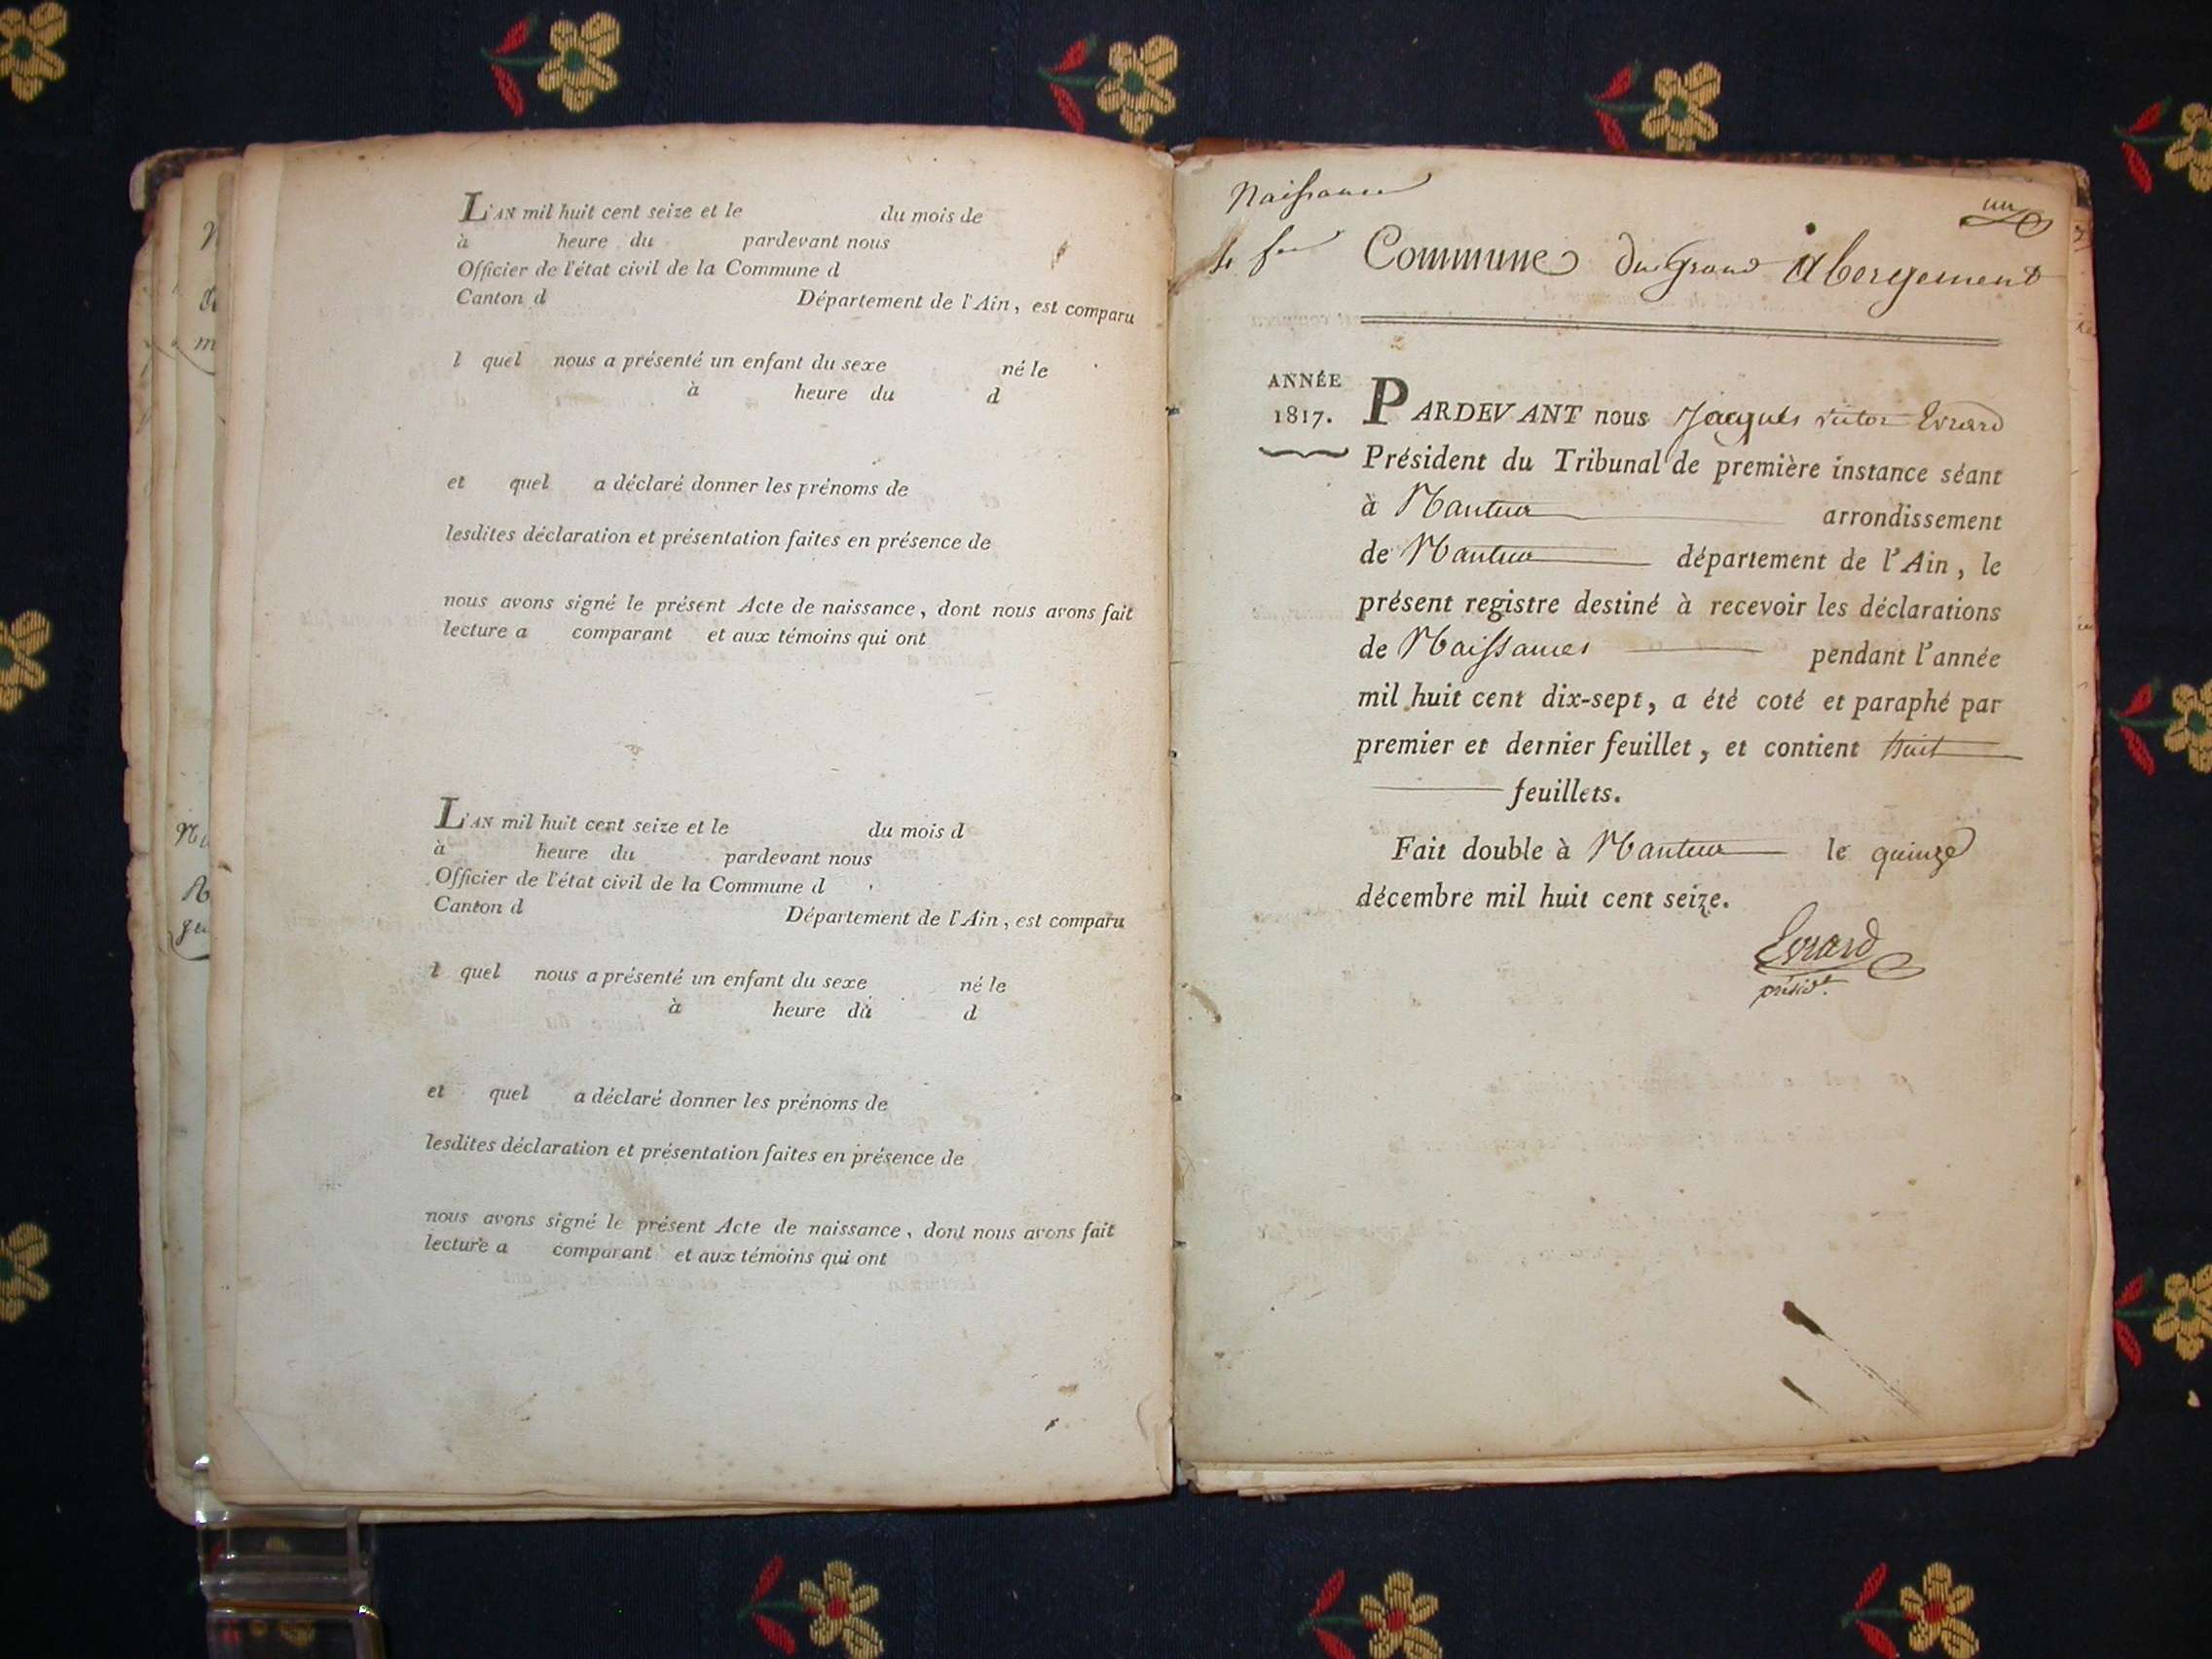 L'AN mil huit cent seize et le du mois de
à heure du pardevant nous
Officier de l'état civil de la Commune d
Canton d Département de l'Ain, est comparu
l quel nous a présenté un enfant du sexe né le
à heure du d
et quel a déclaré donner les prénoms de
lesdites déclaration et présentation faites en présence de
nous avons signé le présent Acte de naissance, dont nous avons fait
lecture a comparant et aux témoins qui ont
L'AN mil huit cent seize et le du mois d
à heure du pardevant nous
Officier de l'état civil de la Commune d
Canton d Département de l'Ain, est comparu
l quel nous a présenté un enfant du sexe né le
à heure du d
et quel a déclaré donner les prénoms de
lesdites déclaration et présentation faites en présence de
nous avons signé le présent Acte de naissance, dont nous avons fait
lecture a comparant et aux témoins qui ont
Naissance
un
Commune du Grand Abergement
ANNÉE
1817.
PARDEVANT nous Jacques Victor Evrard
Président du Tribunal de première instance séant
à Nantua arrondissement
de Nantua département de l'Ain, le
présent registre destiné à recevoir les déclarations
de Naissances pendant l'année
mil huit cent dix-sept, a été coté et paraphé par
premier et dernier feuillet, et contient huit
feuillets.
Fait double à Nantua le quinze
décembre mil huit cent seize.
Evrard
présid.t